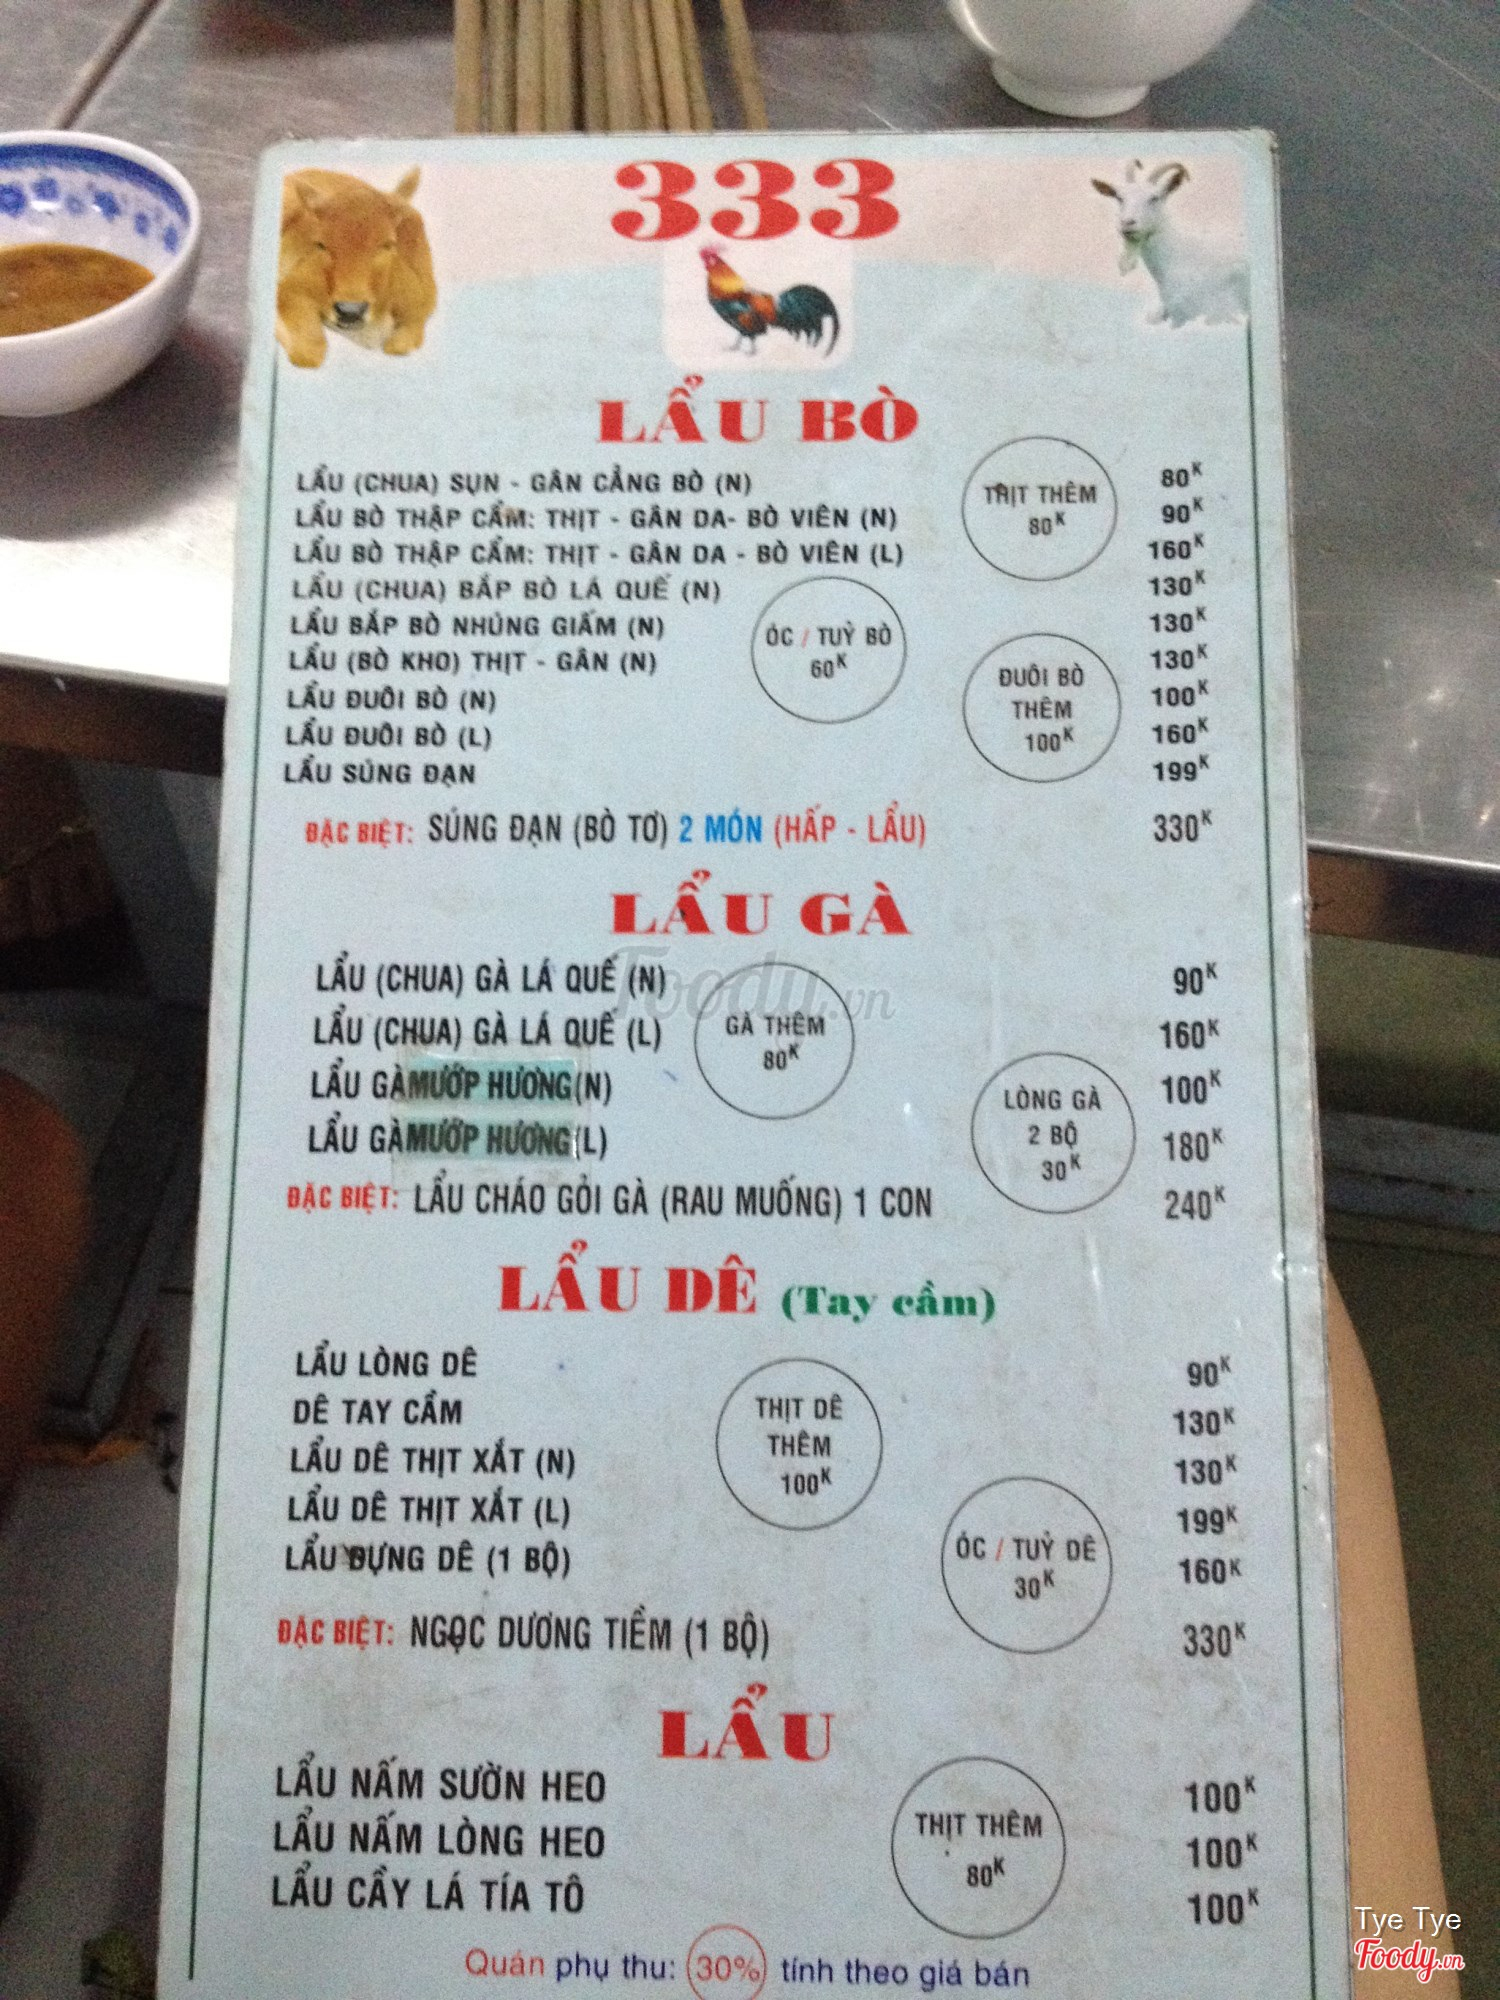 333
LẨU BÒ
LẨU (CHUA) SỤN - GÂN CẢNG BÒ (N) 80K
LẨU BÒ THẬP CẨM: THỊT - GÂN DA- BÒ VIÊN (N) 90K
LẨU BÒ THẬP CẨM: THỊT - GÂN DA - BÒ VIÊN (L) 160K
LẨU (CHUA) BẮP BÒ LÁ QUẾ (N) 130K
LẨU BẮP BÒ NHÚNG GIẤM (N) 130K
LẨU (BÒ KHO) THỊT - GÂN (N) 130K
LẨU ĐUÔI BÒ (N) 100K
LẨU ĐUÔI BÒ (L) 160K
LẨU SÚNG ĐẠN 199K
THỊT THÊM
80K
ÓC / TUỶ BÒ
60K
ĐUÔI BÒ
THÊM
100K
ĐẶC BIỆT: SÚNG ĐẠN (BÒ TƠ) 2 MÓN (HẤP - LẨU) 330K
LẨU GÀ
LẨU (CHUA) GÀ LÁ QUẾ (N) 90K
LẨU (CHUA) GÀ LÁ QUẾ (L) 160K
LẨU GÀ MƯỚP HƯƠNG (N) 100K
LẨU GÀ MƯỚP HƯƠNG (L) 180K
GÀ THÊM
80K
LÒNG GÀ
2 BỘ
30K
ĐẶC BIỆT: LẨU CHÁO GỎI GÀ (RAU MUỐNG) 1 CON 240K
Foody.vn
LẨU DÊ (Tay cầm)
LẨU LÒNG DÊ 90K
DÊ TAY CẦM 130K
LẨU DÊ THỊT XẮT (N) 130K
LẨU DÊ THỊT XẮT (L) 199K
LẨU ĐỰNG DÊ (1 BỘ) 160K
THỊT DÊ
THÊM
100K
ÓC / TUỶ DÊ
30K
ĐẶC BIỆT: NGỌC DƯƠNG TIỀM (1 BỘ) 330K
LẨU
LẨU NẤM SƯỜN HEO 100K
LẨU NẤM LÒNG HEO 100K
LẨU CẦY LÁ TÍA TÔ 100K
THỊT THÊM
80K
Quán phụ thu: 30% tính theo giá bán
Tye Tye
Foody.vn